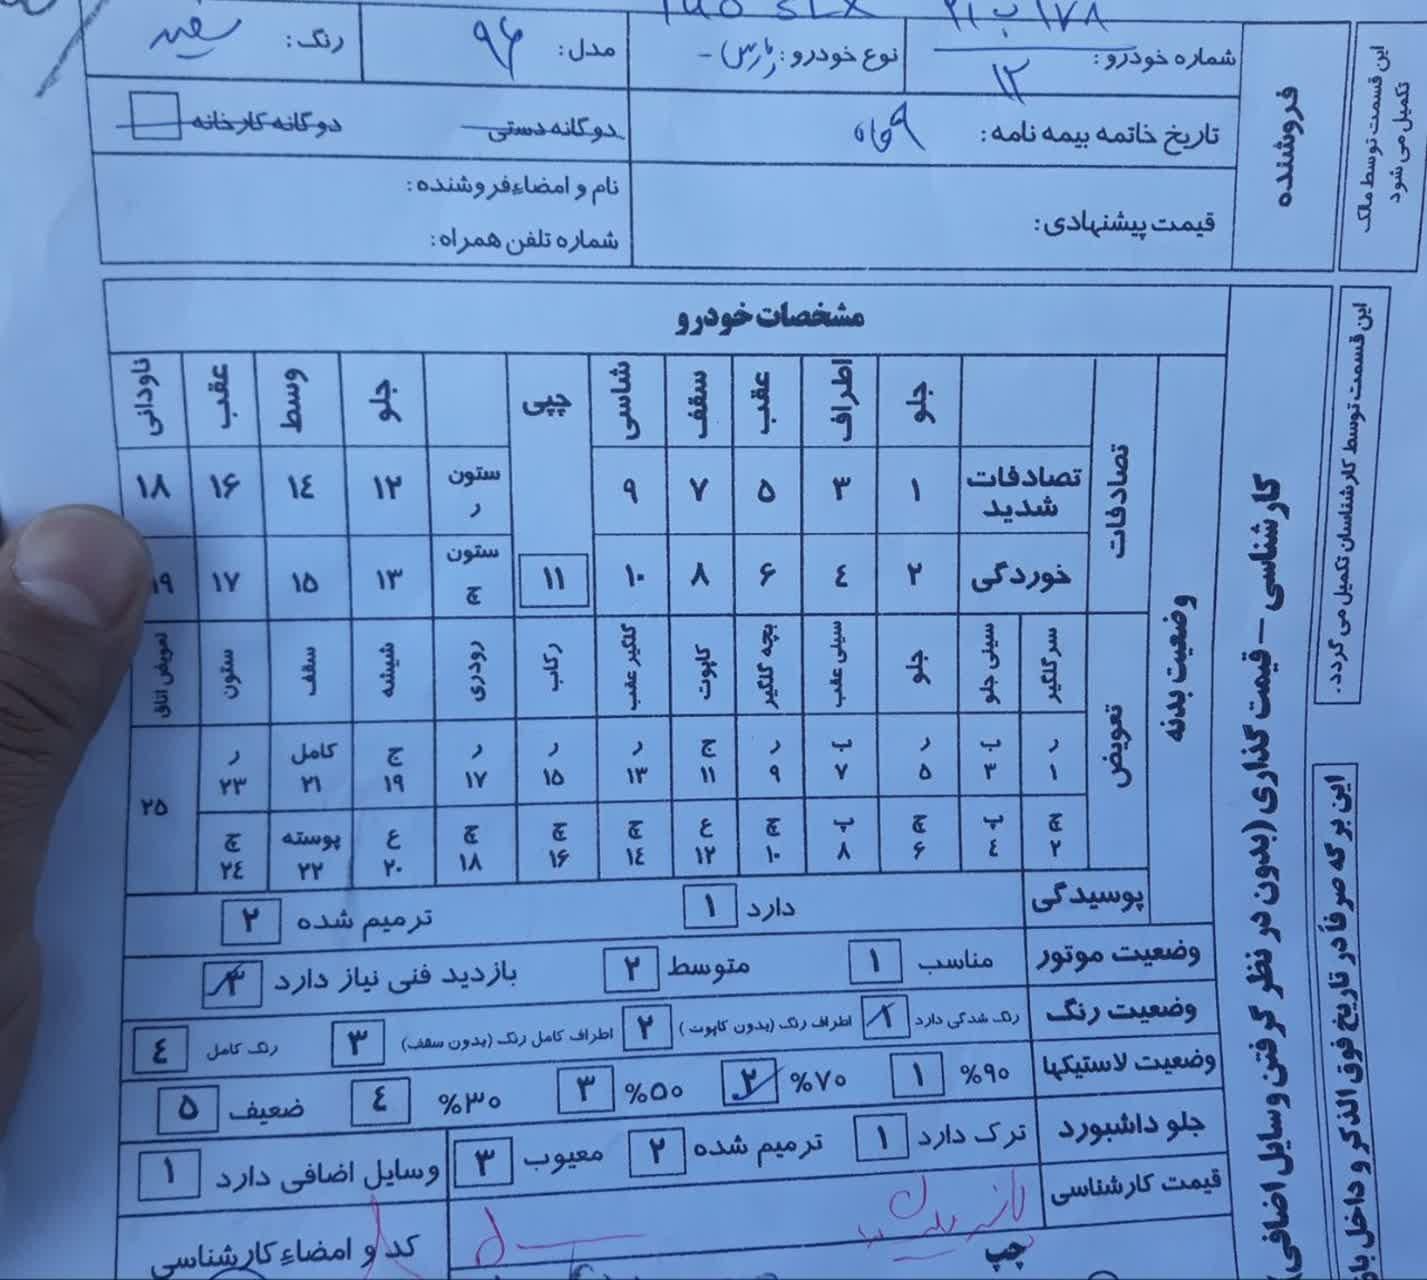 این قسمت توسط مالک
تکمیل می شود
فروشنده
شماره خودرو: ۱۷۸ ب ۲۱
۱۲
نوع خودرو: پارس -
مدل: ۹۶
رنگ: سفید
تاریخ خاتمه بیمه نامه: ۹ ماه
دوگانه دستی
دوگانه کارخانه
قیمت پیشنهادی:
نام و امضاءفروشنده:
شماره تلفن همراه:
این قسمت توسط کارشناسان تکمیل می گردد.
کارشناسی - قیمت گذاری (بدون در نظر گرفتن وسایل اضافی
این برگه صرفاً در تاریخ فوق الذکر و داخل
مشخصات خودرو
وضعیت بدنه
تصادفات
جلو اطراف عقب سقف شاسی چپی جلو وسط عقب ناودانی
تصادفات شدید ۱ ۳ ۵ ۷ ۹ ستون ر ۱۲ ۱٤ ۱۶ ۱۸
خوردگی ۲ ٤ ۶ ۸ ۱۰ ۱۱ ستون چ ۱۳ ۱۵ ۱۷ ۱۹
تعویض
سرگلگیر سینی جلو جلو سینی عقب بچه گلگیر کاپوت گلگیر عقب رکاب رودری شیشه سقف ستون تعویض اتاق
ر ۱ ۳ ر ۵ ۷ ر ۹ ج ۱۱ ر ۱۳ ر ۱۵ ر ۱۷ ج ۱۹ کامل ۲۱ ر ۲۳ ۲۵
چ ۲ ٤ چ ۶ ۸ چ ۱۰ ع ۱۲ چ ۱٤ چ ۱۶ چ ۱۸ ع ۲۰ پوسته ۲۲ چ ۲٤
پوسیدگی دارد ۱ ترمیم شده ۲
وضعیت موتور مناسب ۱ متوسط ۲ بازدید فنی نیاز دارد ۳
وضعیت رنگ رنگ شدگی دارد ۱ اطراف رنگ (بدون کاپوت) ۲ اطراف کامل رنگ (بدون سقف) ۳ رنگ کامل ٤
وضعیت لاستیکها ۹۰% ۱ ۷۰% ۲ ۵۰% ۳ ۳۰% ٤ ضعیف ۵
جلو داشبورد ترک دارد ۱ ترمیم شده ۲ معیوب ۳ وسایل اضافی دارد ۱
قیمت کارشناسی
چپ
کد و امضاء کارشناسی